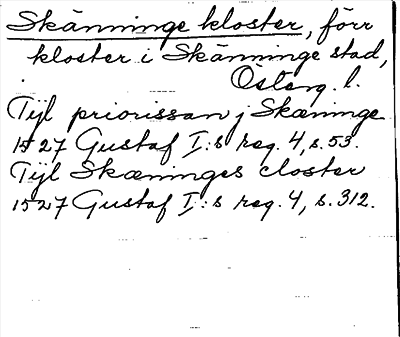 Skänninge kloster, förr
kloster i Skänninge stad,
Österg. l.
Tijl priorissan j Skæninge
1527 Gustaf I:s reg. 4, s. 53.
Tijl Skæninges closter
1527 Gustaf I:s reg. 4, s. 312.